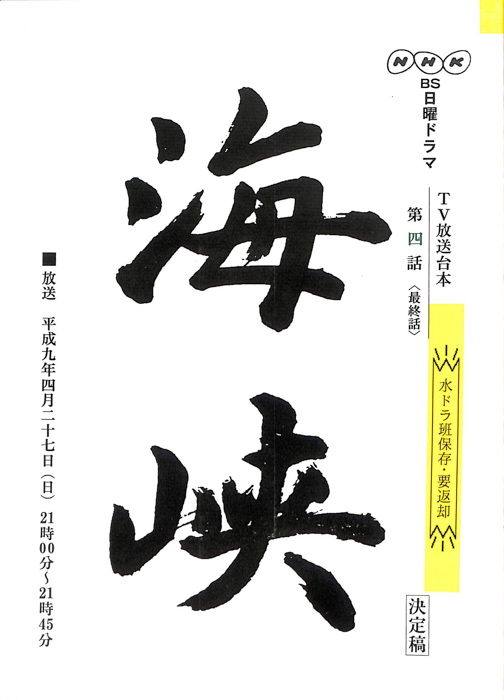 NHK
BS日曜ドラマ
TV放送台本
第四話〈最終話〉
水ドラ班保存・要返却
決定稿
海峡
■放送 平成九年四月二十七日(日) 21時00分~21時45分